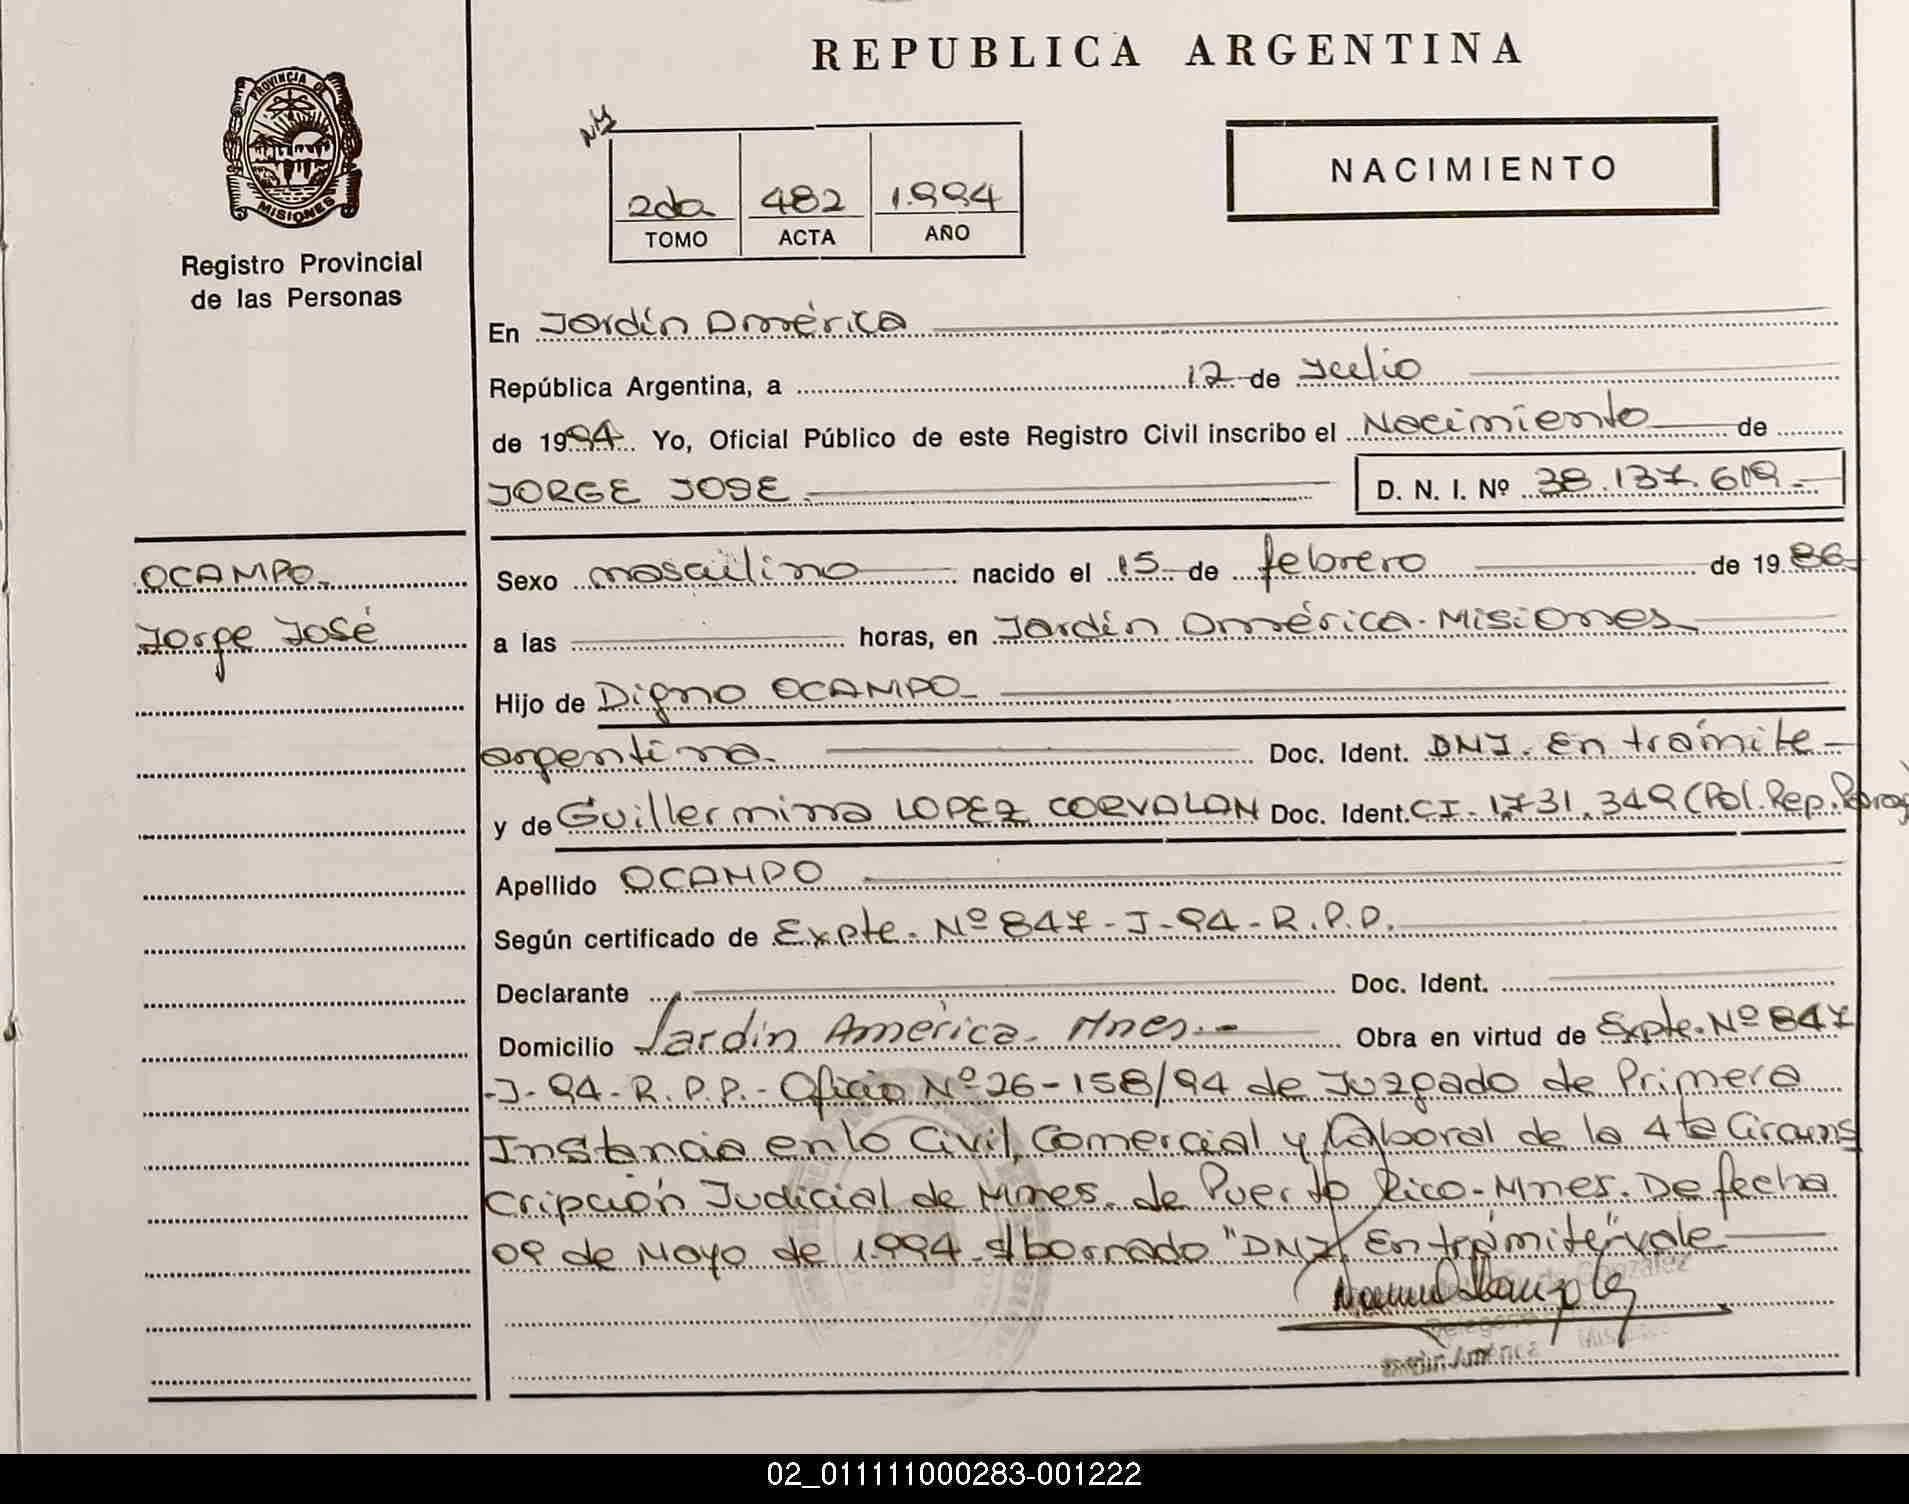 REPUBLICA ARGENTINA
PROVINCIA DE
MISIONES
Registro Provincial
de las Personas
2da 482 1.994
TOMO ACTA AÑO
NACIMIENTO
En Jardín América
República Argentina, a 12 de Julio
de 1994. Yo, Oficial Público de este Registro Civil inscribo el Nacimiento de
JORGE JOSE D. N. I. Nº 38.137.619.-
OCAMPO.
Jorge José
Sexo masculino nacido el 15 de febrero de 1986
a las horas, en Jardín América. Misiones
Hijo de Digno OCAMPO
argentina. Doc. Ident. DNI. En trámite
y de Guillermina LOPEZ CORVALAN Doc. Ident. CI. 1.731.349 (Pol. Rep. Parag)
Apellido OCAMPO
Según certificado de Expte. Nº 847-J-94-R.P.P.
Declarante Doc. Ident.
Domicilio Jardín América. Mnes.- Obra en virtud de Expte. Nº 847
-J-94-R.P.P.- Oficio Nº 26-158/94 de Juzgado de Primera
Instancia en lo Civil, Comercial y Laboral de la 4ta Circuns
cripción Judicial de Mnes. de Puerto Rico-Mnes. De fecha
09 de Mayo de 1.994. S/borrado "DNI. En trámite" vale
González
Jardín América
02_011111000283-001222